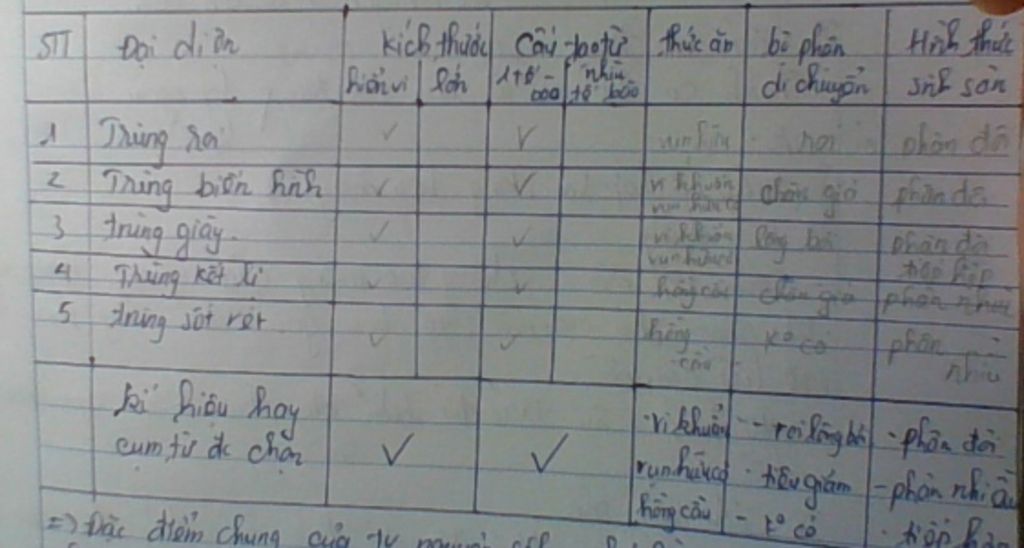 STT Đại diện kích thước Cấu tạo từ thức ăn bộ phận Hình thức
hiển vi lớn 1 tế bào nhiều tế bào di chuyển sinh sản
1 Trùng roi ✓ ✓ vụn hữu roi phân đôi
2 Trùng biến hình ✓ ✓ vi khuẩn vụn hữu cơ chân giả phân đôi
3 trùng giày ✓ ✓ vi khuẩn vụn hữu cơ lông bơi phân đôi tiếp hợp
4 Trùng kết lị ✓ ✓ hồng cầu chân giả phân nhiều
5 trùng sốt rét ✓ ✓ hồng cầu kº có phân nhiều
kí hiệu hay ✓ ✓ - vi khuẩn - roi lông bơi - phân đôi
cụm từ đc chọn vụn hữu cơ - tiêu giảm - phân nhiều
hồng cầu - kº có - tiếp hợp
=> Đặc điểm chung của